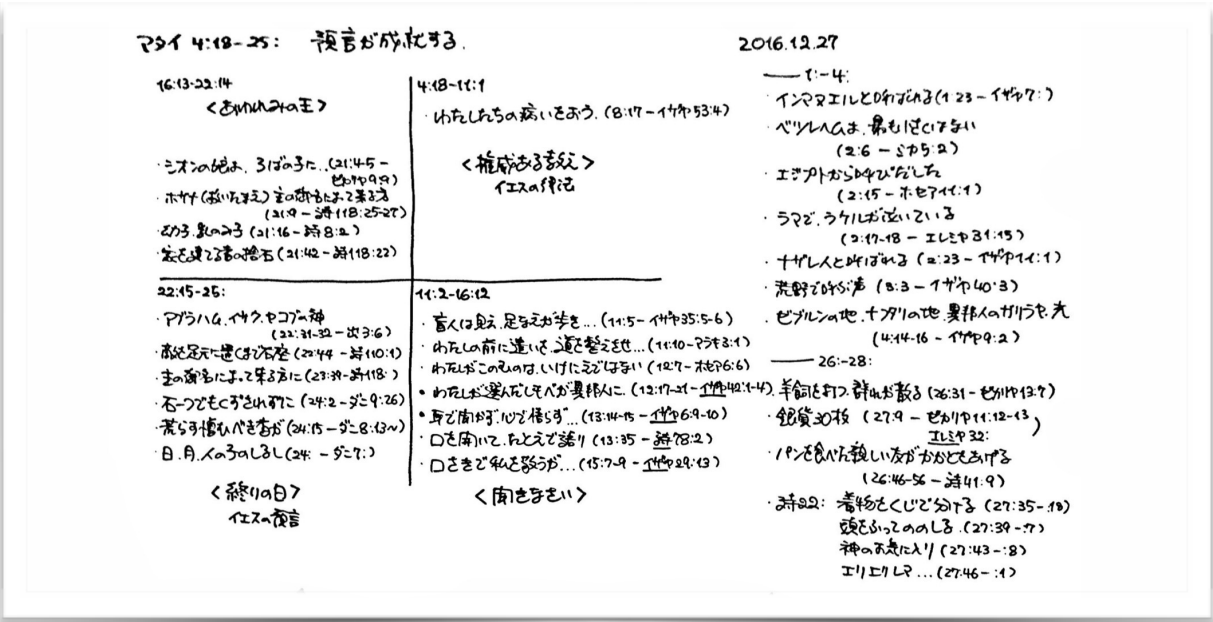 マタイ 4:18-25: 預言が成就する.
2016.12.27
16:13-22:14
<あわれみの王>
・シオンの娘よ, ろばの子に..(21:4-5 -
ゼカリヤ9:9)
・ホサナ(お救いたまえ) 主の御名によって来る方
(21:9 - 詩118:25-27)
・幼子, 乳のみ子 (21:16 - 詩8:2)
・家を建てる者の捨石 (21:42 - 詩118:22)
4:18-11:1
・わたしたちの病いをおう. (8:17 - イザヤ53:4)
<権威ある教え>
イエスの律法
22:15-25:
・アブラハム, イサク, ヤコブの神
(22:31-32 - 出3:6)
・敵を足元に置くまで右座 (22:44 - 詩110:1)
・主の御名によって来る方に (23:39 - 詩118:)
・石一つでもくずされずに (24:2 - ダニ9:26)
・荒らす憎むべき者が (24:15 - ダニ8:13〜)
・日, 月, 人の子のしるし (24: - ダニ7:)
<終りの日>
イエスの預言
11:2-16:12
・盲人は見え, 足なえが歩き... (11:5 - イザヤ35:5-6)
・わたしの前に遣いを, 道を整えさせ... (11:10 - マラキ3:1)
・わたしがこのむのは, いけにえではない (12:7 - ホセア6:6)
・わたしが選んだしもべが異邦人に. (12:17-21 - イザヤ42:1-4)
・耳で聞かず, 心で悟らず... (13:14-15 - イザヤ6:9-10)
・口を開いて, たとえで語り (13:35 - 詩78:2)
・口さきで私を敬うが... (15:7-9 - イザヤ29:13)
<聞きなさい>
—— 1:-4:
・インマヌエルと呼ばれる (1:23 - イザヤ7:)
・ベツレヘムは, 最も小さくはない
(2:6 - ミカ5:2)
・エジプトから呼びだした
(2:15 - ホセア11:1)
・ラマで, ラケルが泣いている
(2:17-18 - エレミヤ31:15)
・ナザレ人と呼ばれる (2:23 - イザヤ11:1)
・荒野で呼ぶ声 (3:3 - イザヤ40:3)
・ゼブルンの地, ナフタリの地, 異邦人のガリラヤ, 光
(4:14-16 - イザヤ9:2)
—— 26:-28:
・羊飼を打つ, 群れが散る (26:31 - ゼカリヤ13:7)
・銀貨30枚 (27:9 - ゼカリヤ11:12-13,
エレミヤ32:)
・パンを食べた親しい友がかかとをあげる
(26:46-56 - 詩41:9)
・詩22: 着物をくじで分ける (27:35 - :18)
頭をふってののしる. (27:39 - :7)
神のお気に入り (27:43 - :8)
エリ エリ レマ... (27:46 - :1)